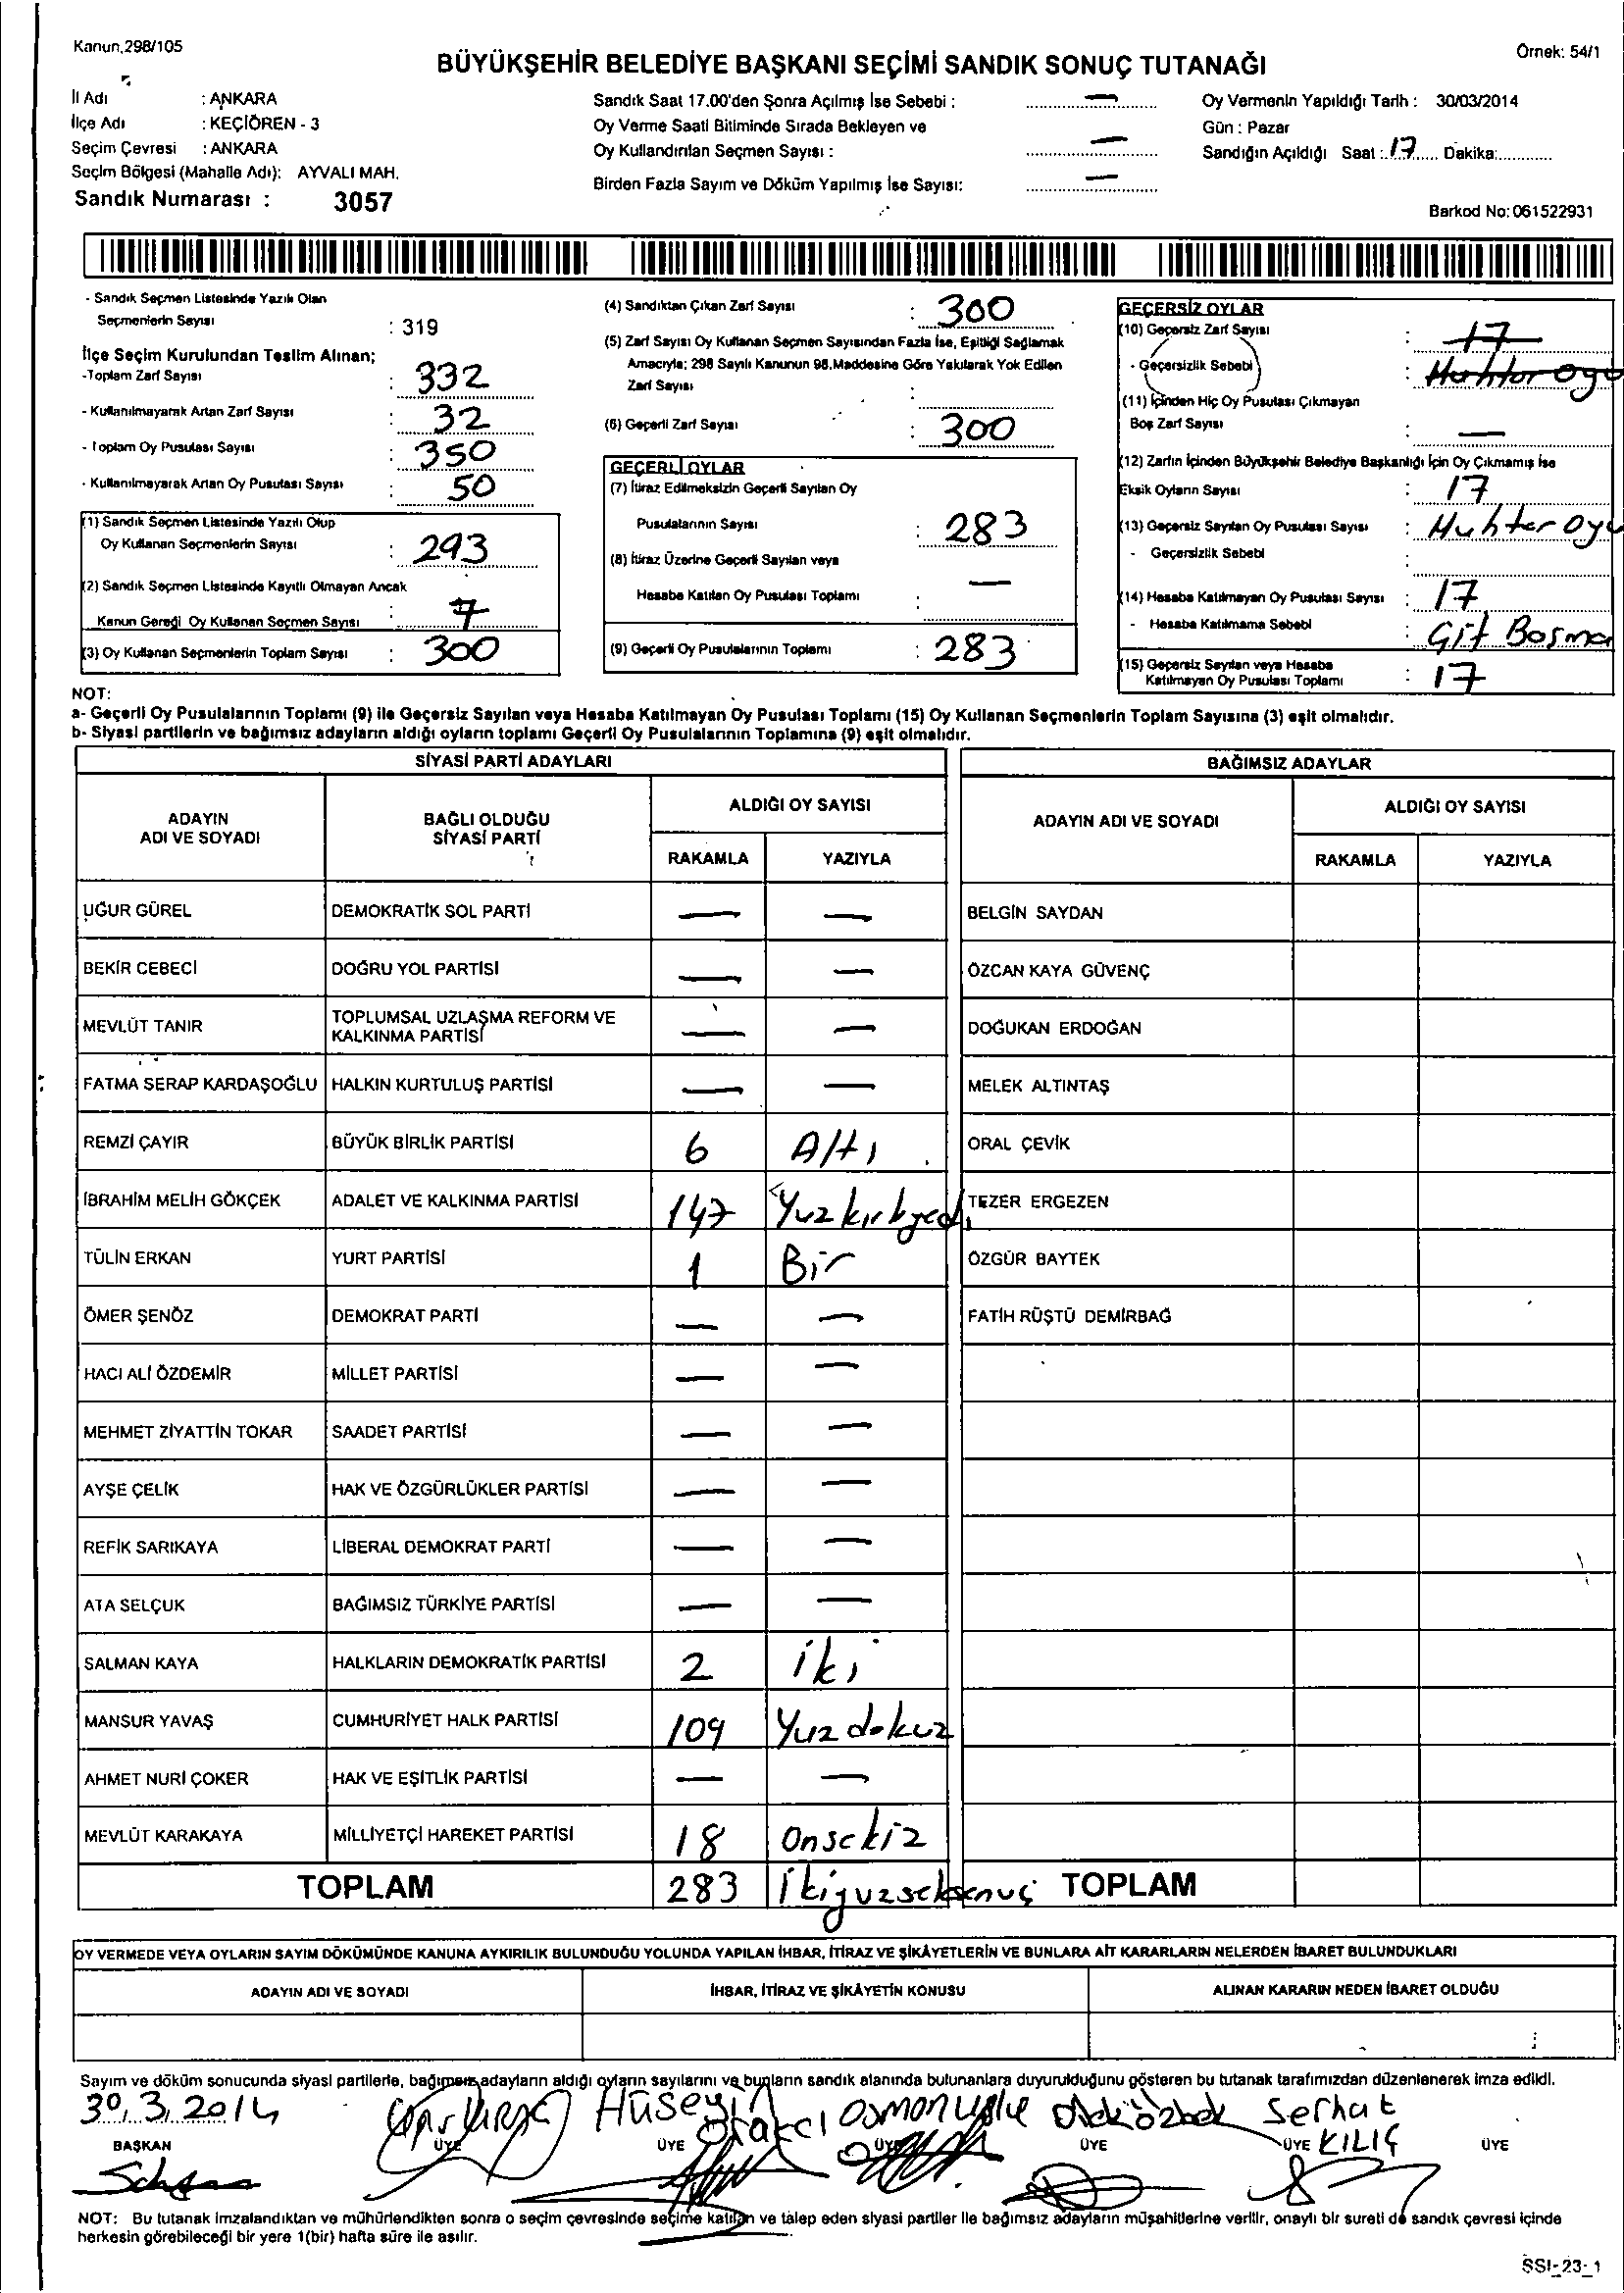 Kanun,298/105
Örnek: 54/1
BÜYÜKŞEHİR BELEDİYE BAŞKANI SEÇİMİ SANDIK SONUÇ TUTANAĞI
İl Adı : ANKARA
İlçe Adı : KEÇİÖREN - 3
Seçim Çevresi : ANKARA
Seçim Bölgesi (Mahalle Adı): AYVALI MAH.
Sandık Numarası : 3057
Sandık Saat 17.00'den Şonra Açılmış İse Sebebi : —
Oy Verme Saati Bitiminde Sırada Bekleyen ve
Oy Kullandırılan Seçmen Sayısı : —
Birden Fazla Sayım ve Döküm Yapılmış İse Sayısı: —
Oy Vermenin Yapıldığı Tarih : 30/03/2014
Gün : Pazar
Sandığın Açıldığı Saat : 17 Dakika:
Barkod No: 061522931
- Sandık Seçmen Listesinde Yazılı Olan
Seçmenlerin Sayısı : 319
İlçe Seçim Kurulundan Teslim Alınan;
-Toplam Zarf Sayısı : 332
- Kullanılmayarak Artan Zarf Sayısı : 32
- Toplam Oy Pusulası Sayısı : 350
- Kullanılmayarak Artan Oy Pusulası Sayısı : 50
(1) Sandık Seçmen Listesinde Yazılı Olup
Oy Kullanan Seçmenlerin Sayısı : 293
(2) Sandık Seçmen Listesinde Kayıtlı Olmayan Ancak
Kanun Gereği Oy Kullanan Seçmen Sayısı : 7
(3) Oy Kullanan Seçmenlerin Toplam Sayısı : 300
(4) Sandıktan Çıkan Zarf Sayısı : 300
(5) Zarf Sayısı Oy Kullanan Seçmen Sayısından Fazla İse, Eşitliği Sağlamak
Amacıyla; 298 Sayılı Kanunun 98.Maddesine Göre Yakılarak Yok Edilen
Zarf Sayısı :
(6) Geçerli Zarf Sayısı : 300
GEÇERLİ OYLAR
(7) İtiraz Edilmeksizin Geçerli Sayılan Oy
Pusulalarının Sayısı : 283
(8) İtiraz Üzerine Geçerli Sayılan veya
Hesaba Katılan Oy Pusulası Toplamı : —
(9) Geçerli Oy Pusulalarının Toplamı : 283
GEÇERSİZ OYLAR
(10) Geçersiz Zarf Sayısı : 17
- Geçersizlik Sebebi : Muhtar oyu
(11) İçinden Hiç Oy Pusulası Çıkmayan
Boş Zarf Sayısı : —
(12) Zarfın İçinden Büyükşehir Belediye Başkanlığı İçin Oy Çıkmamış İse
Eksik Oyların Sayısı : 17
(13) Geçersiz Sayılan Oy Pusulası Sayısı : Muhtar oyu
- Geçersizlik Sebebi
(14) Hesaba Katılmayan Oy Pusulası Sayısı : 17
- Hesaba Katılmama Sebebi : Çift Basma
(15) Geçersiz Sayılan veya Hesaba
Katılmayan Oy Pusulası Toplamı : 17
NOT:
a- Geçerli Oy Pusulalarının Toplamı (9) ile Geçersiz Sayılan veya Hesaba Katılmayan Oy Pusulası Toplamı (15) Oy Kullanan Seçmenlerin Toplam Sayısına (3) eşit olmalıdır.
b- Siyasi partilerin ve bağımsız adayların aldığı oyların toplamı Geçerli Oy Pusulalarının Toplamına (9) eşit olmalıdır.
SİYASİ PARTİ ADAYLARI BAĞIMSIZ ADAYLAR
ADAYIN ADI VE SOYADI BAĞLI OLDUĞU SİYASİ PARTİ ALDIĞI OY SAYISI ADAYIN ADI VE SOYADI ALDIĞI OY SAYISI
RAKAMLA YAZIYLA RAKAMLA YAZIYLA
UĞUR GÜREL DEMOKRATİK SOL PARTİ — — BELGİN SAYDAN
BEKİR CEBECİ DOĞRU YOL PARTİSİ — — ÖZCAN KAYA GÜVENÇ
MEVLÜT TANIR TOPLUMSAL UZLAŞMA REFORM VE KALKINMA PARTİSİ — — DOĞUKAN ERDOĞAN
FATMA SERAP KARDAŞOĞLU HALKIN KURTULUŞ PARTİSİ — — MELEK ALTINTAŞ
REMZİ ÇAYIR BÜYÜK BİRLİK PARTİSİ 6 Altı ORAL ÇEVİK
İBRAHİM MELİH GÖKÇEK ADALET VE KALKINMA PARTİSİ 147 Yuzkırkyedi TEZER ERGEZEN
TÜLİN ERKAN YURT PARTİSİ 1 Bir ÖZGÜR BAYTEK
ÖMER ŞENÖZ DEMOKRAT PARTİ — — FATİH RÜŞTÜ DEMİRBAĞ
HACI ALİ ÖZDEMİR MİLLET PARTİSİ — —
MEHMET ZİYATTİN TOKAR SAADET PARTİSİ — —
AYŞE ÇELİK HAK VE ÖZGÜRLÜKLER PARTİSİ — —
REFİK SARIKAYA LİBERAL DEMOKRAT PARTİ — —
ATA SELÇUK BAĞIMSIZ TÜRKİYE PARTİSİ — —
SALMAN KAYA HALKLARIN DEMOKRATİK PARTİSİ 2 iki
MANSUR YAVAŞ CUMHURİYET HALK PARTİSİ 109 Yuz dokuz
AHMET NURİ ÇOKER HAK VE EŞİTLİK PARTİSİ — —
MEVLÜT KARAKAYA MİLLİYETÇİ HAREKET PARTİSİ 18 Onsekiz
TOPLAM 283 İkiyuzseksenuç TOPLAM
OY VERMEDE VEYA OYLARIN SAYIM DÖKÜMÜNDE KANUNA AYKIRILIK BULUNDUĞU YOLUNDA YAPILAN İHBAR, İTİRAZ VE ŞİKÂYETLERİN VE BUNLARA AİT KARARLARIN NELERDEN İBARET BULUNDUKLARI
ADAYIN ADI VE SOYADI İHBAR, İTİRAZ VE ŞİKÂYETİN KONUSU ALINAN KARARIN NEDEN İBARET OLDUĞU
Sayım ve döküm sonucunda siyasi partilerle, bağımsız adayların aldığı oyların sayılarını ve bunların sandık alanında bulunanlara duyurulduğunu gösteren bu tutanak tarafımızdan düzenlenerek imza edildi.
30.3.2014 Hüseyin Serhat
BAŞKAN ÜYE ÜYE ÜYE ÜYE ÜYE KILIÇ ÜYE
NOT: Bu tutanak imzalandıktan ve mühürlendikten sonra o seçim çevresinde seçime katılan ve talep eden siyasi partiler ile bağımsız adayların müşahitlerine verilir, onaylı bir sureti de sandık çevresi içinde
herkesin görebileceği bir yere 1(bir) hafta süre ile asılır.
SSI-23-1